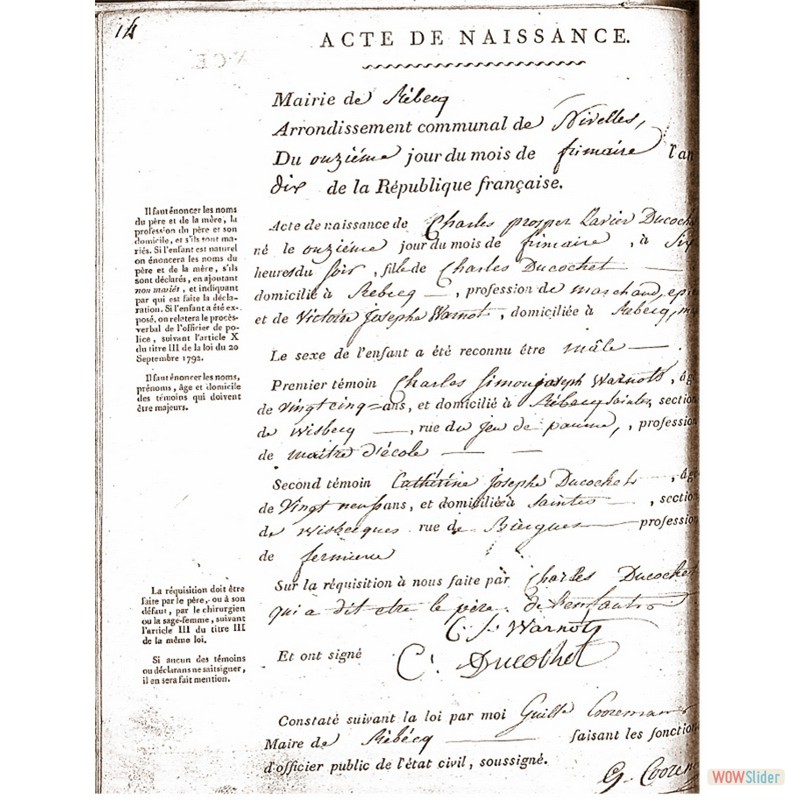 14
ACTE DE NAISSANCE.
Mairie de Rebecq
Arrondissement communal de Nivelles,
Du onziéme jour du mois de frimaire l'an
dix de la République française.
Acte de naissance de Charles prosper Xavier Ducochet
né le onziéme jour du mois de frimaire, à Six
heures du Soir, fils de Charles Ducochet
domicilié à Rebecq, profession de marchand
et de Victoire Josephe Warnot, domiciliée à Rebecq,
Le sexe de l'enfant a été reconnu être mâle.
Premier témoin Charles Simon joseph Warnots, âgé
de Vingt cinq ans, et domicilié à Rebecq Saintes, section
de Wisbecq, rue du Jeu de paume, profession
de maitre d'école
Second témoin Cathérine Josephe Ducochet, âgé
de Vingt neuf ans, et domiciliée à Saintes, section
de Wisbecques rue de Bierques profession
de fermiere
Sur la réquisition à nous faite par Charles Ducochet
qui a dit etre le père de l'enfant
C. S. Warnots
Et ont signé C. Ducochet
Constaté suivant la loi par moi Guille Cooreman
Maire de Rebécq faisant les fonctions
d'officier public de l'état civil, soussigné.
G. Coorem
Il faut énoncer les noms
du père et de la mère, la
profession du père et son
domicile, et s'ils sont ma-
riés. Si l'enfant est naturel
on énoncera les noms du
père et de la mère, s'ils
sont déclarés, en ajoutant
non mariés, et indiquant
par qui est faite la décla-
ration. Si l'enfant a été ex-
posé, on relatera le procès-
verbal de l'officier de po-
lice, suivant l'article X
du titre III de la loi du 20
Septembre 1792.
Il faut énoncer les noms,
prénoms, âge et domicile
des témoins qui doivent
être majeurs.
La réquisition doit être
faite par le père, ou à son
défaut, par le chirurgien
ou la sage-femme, suivant
l'article III du titre III
de la même loi.
Si aucun des témoins
ou déclarans ne sait signer,
il en sera fait mention.
WOWSlider